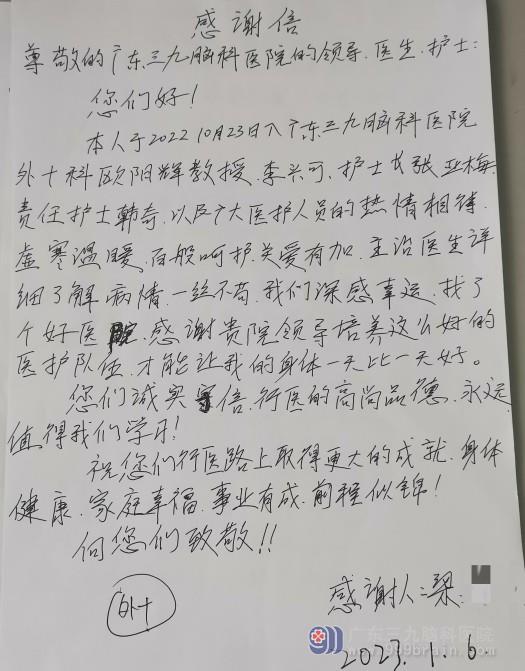 感谢信
尊敬的广东三九脑科医院的领导、医生、护士：
您们好！
本人于2022 10月23日入广东三九脑科医院
外十科欧阳辉教授、李兴可、护士长张亚梅、
责任护士韩奇、以及广大医护人员的热情相待、
虚寒温暖、百般呵护、关爱有加、主治医生详
细了解病情、一丝不苟、我们深感幸运、找了
个好医院、感谢贵院领导培养这么好的
医护队伍、才能让我的身体一天比一天好。
您们诚实守信、行医的高尚品德、永远
值得我们学习！
祝您们行医路上取得更大的成就、身体
健康、家庭幸福、事业有成、前程似锦！
向您们致敬！！
外十
感谢人：梁
2023.1.6
广东三九脑科医院
www.999brain.com